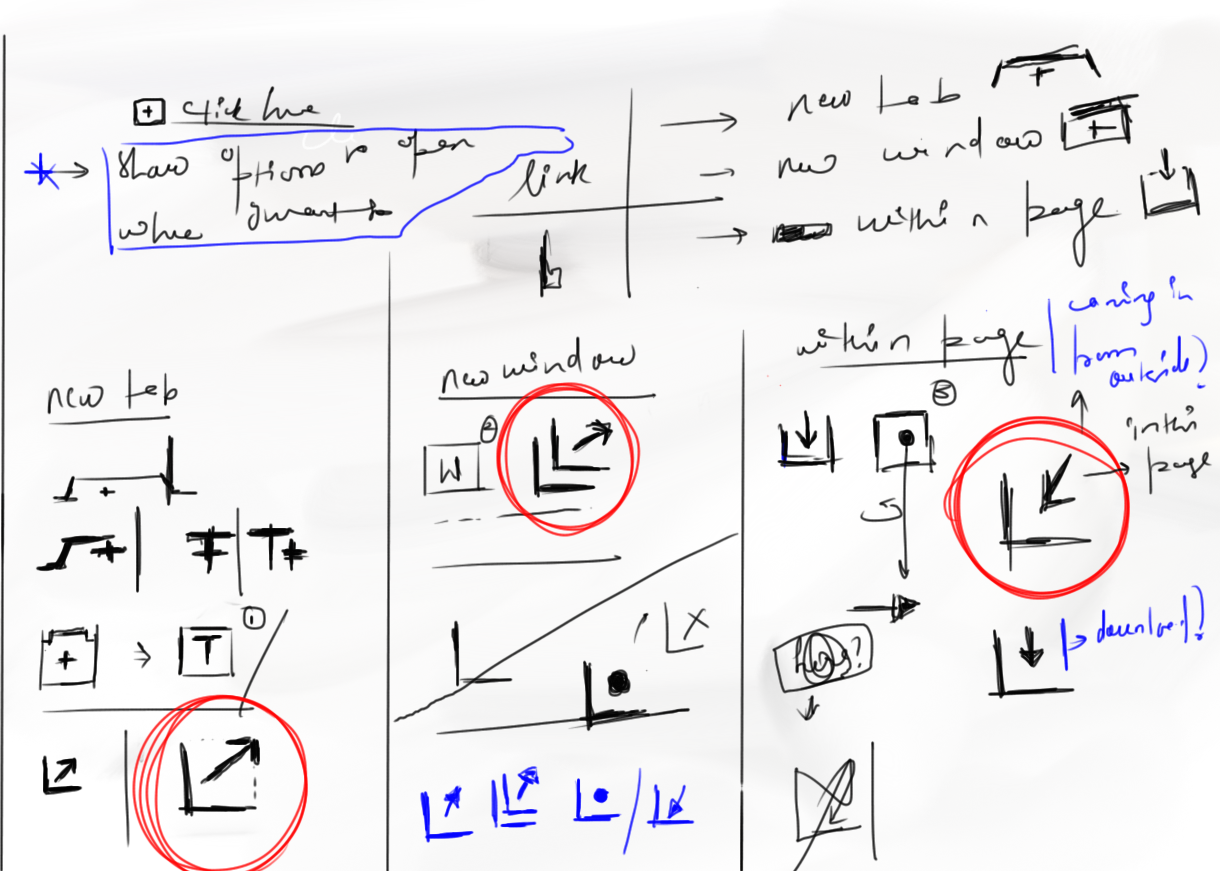 + click here
show options to open
where
link
new tab +
new window +
within page
new tab
+
+ T 1
new window
W 2
X
within page
coming in
from
outside?
3
in this
page
download?